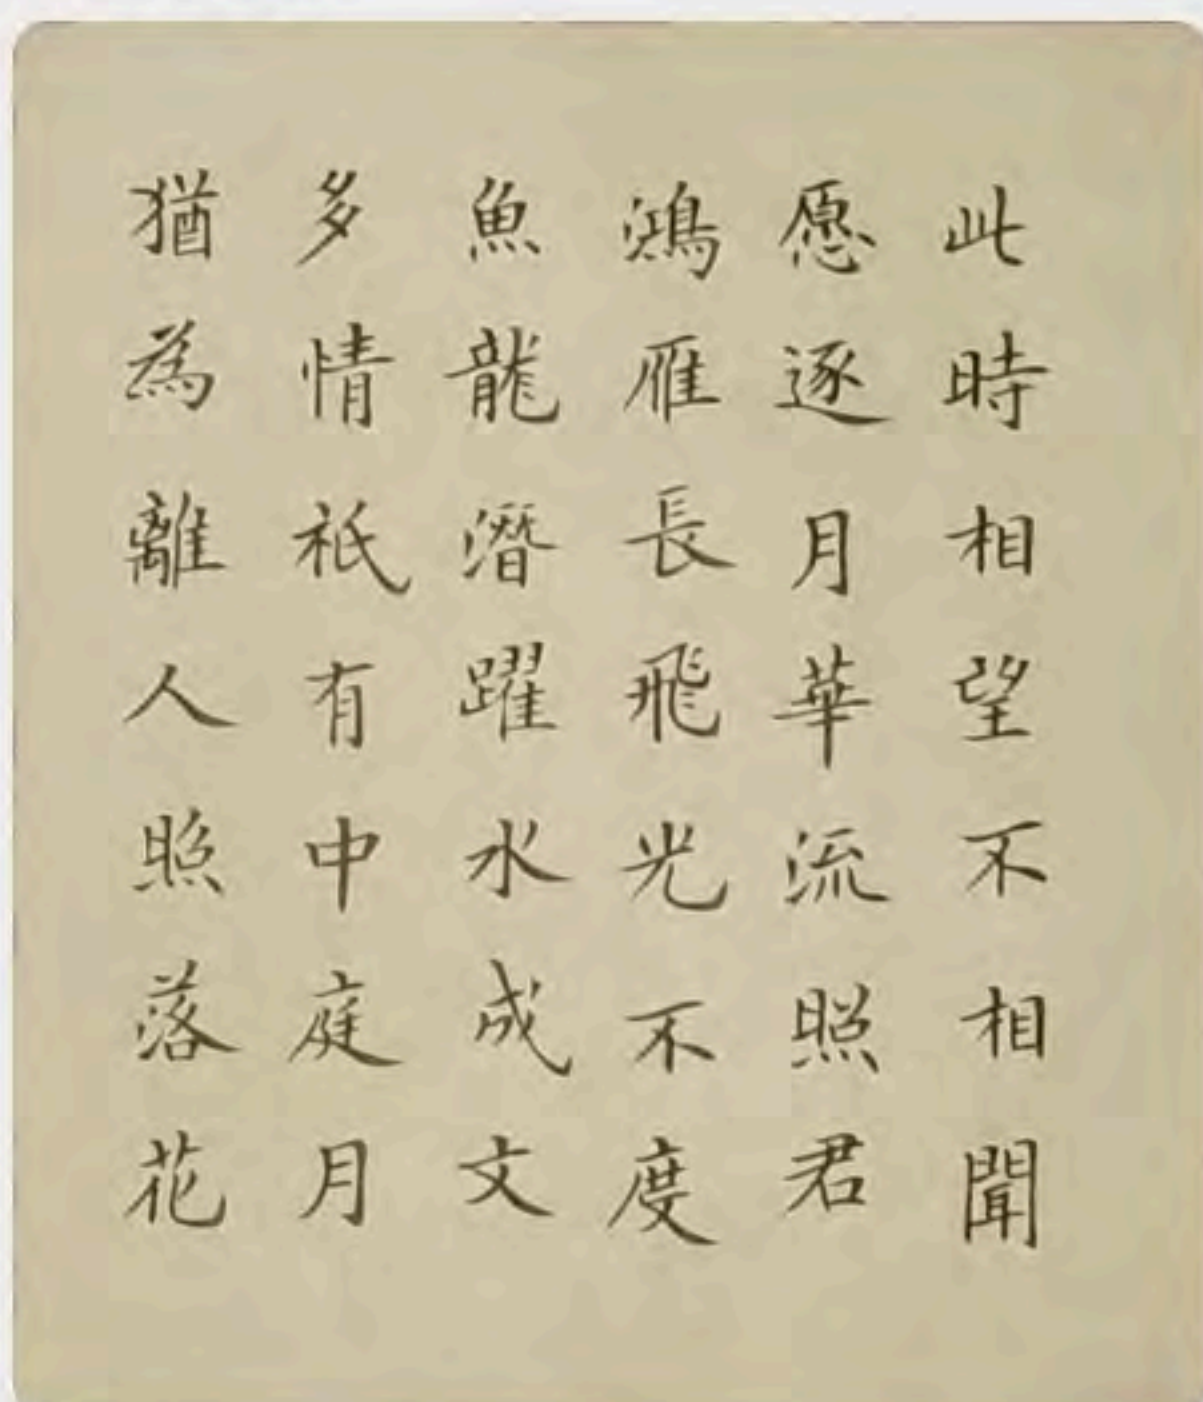 此時相望不相聞
愿逐月華流照君
鴻雁長飛光不度
魚龍潛躍水成文
多情祇有中庭月
猶為離人照落花